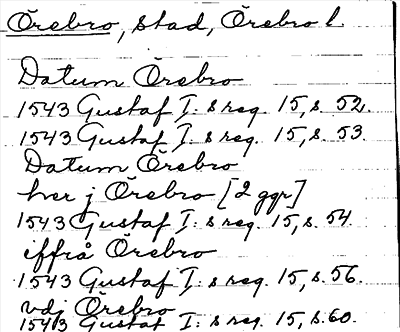 Örebro, stad, Örebro l.
Datum Örebro
1543 Gustaf I: s reg. 15, s. 52.
1543 Gustaf I: s reg. 15, s. 53.
Datum Örebro
her j Örebro [2 ggr]
1543 Gustaf I: s reg. 15, s. 54.
iffrå Örebro
1543 Gustaf I: s reg. 15, s. 56.
vdj Örebro
1543 Gustaf I: s reg. 15, s. 60.